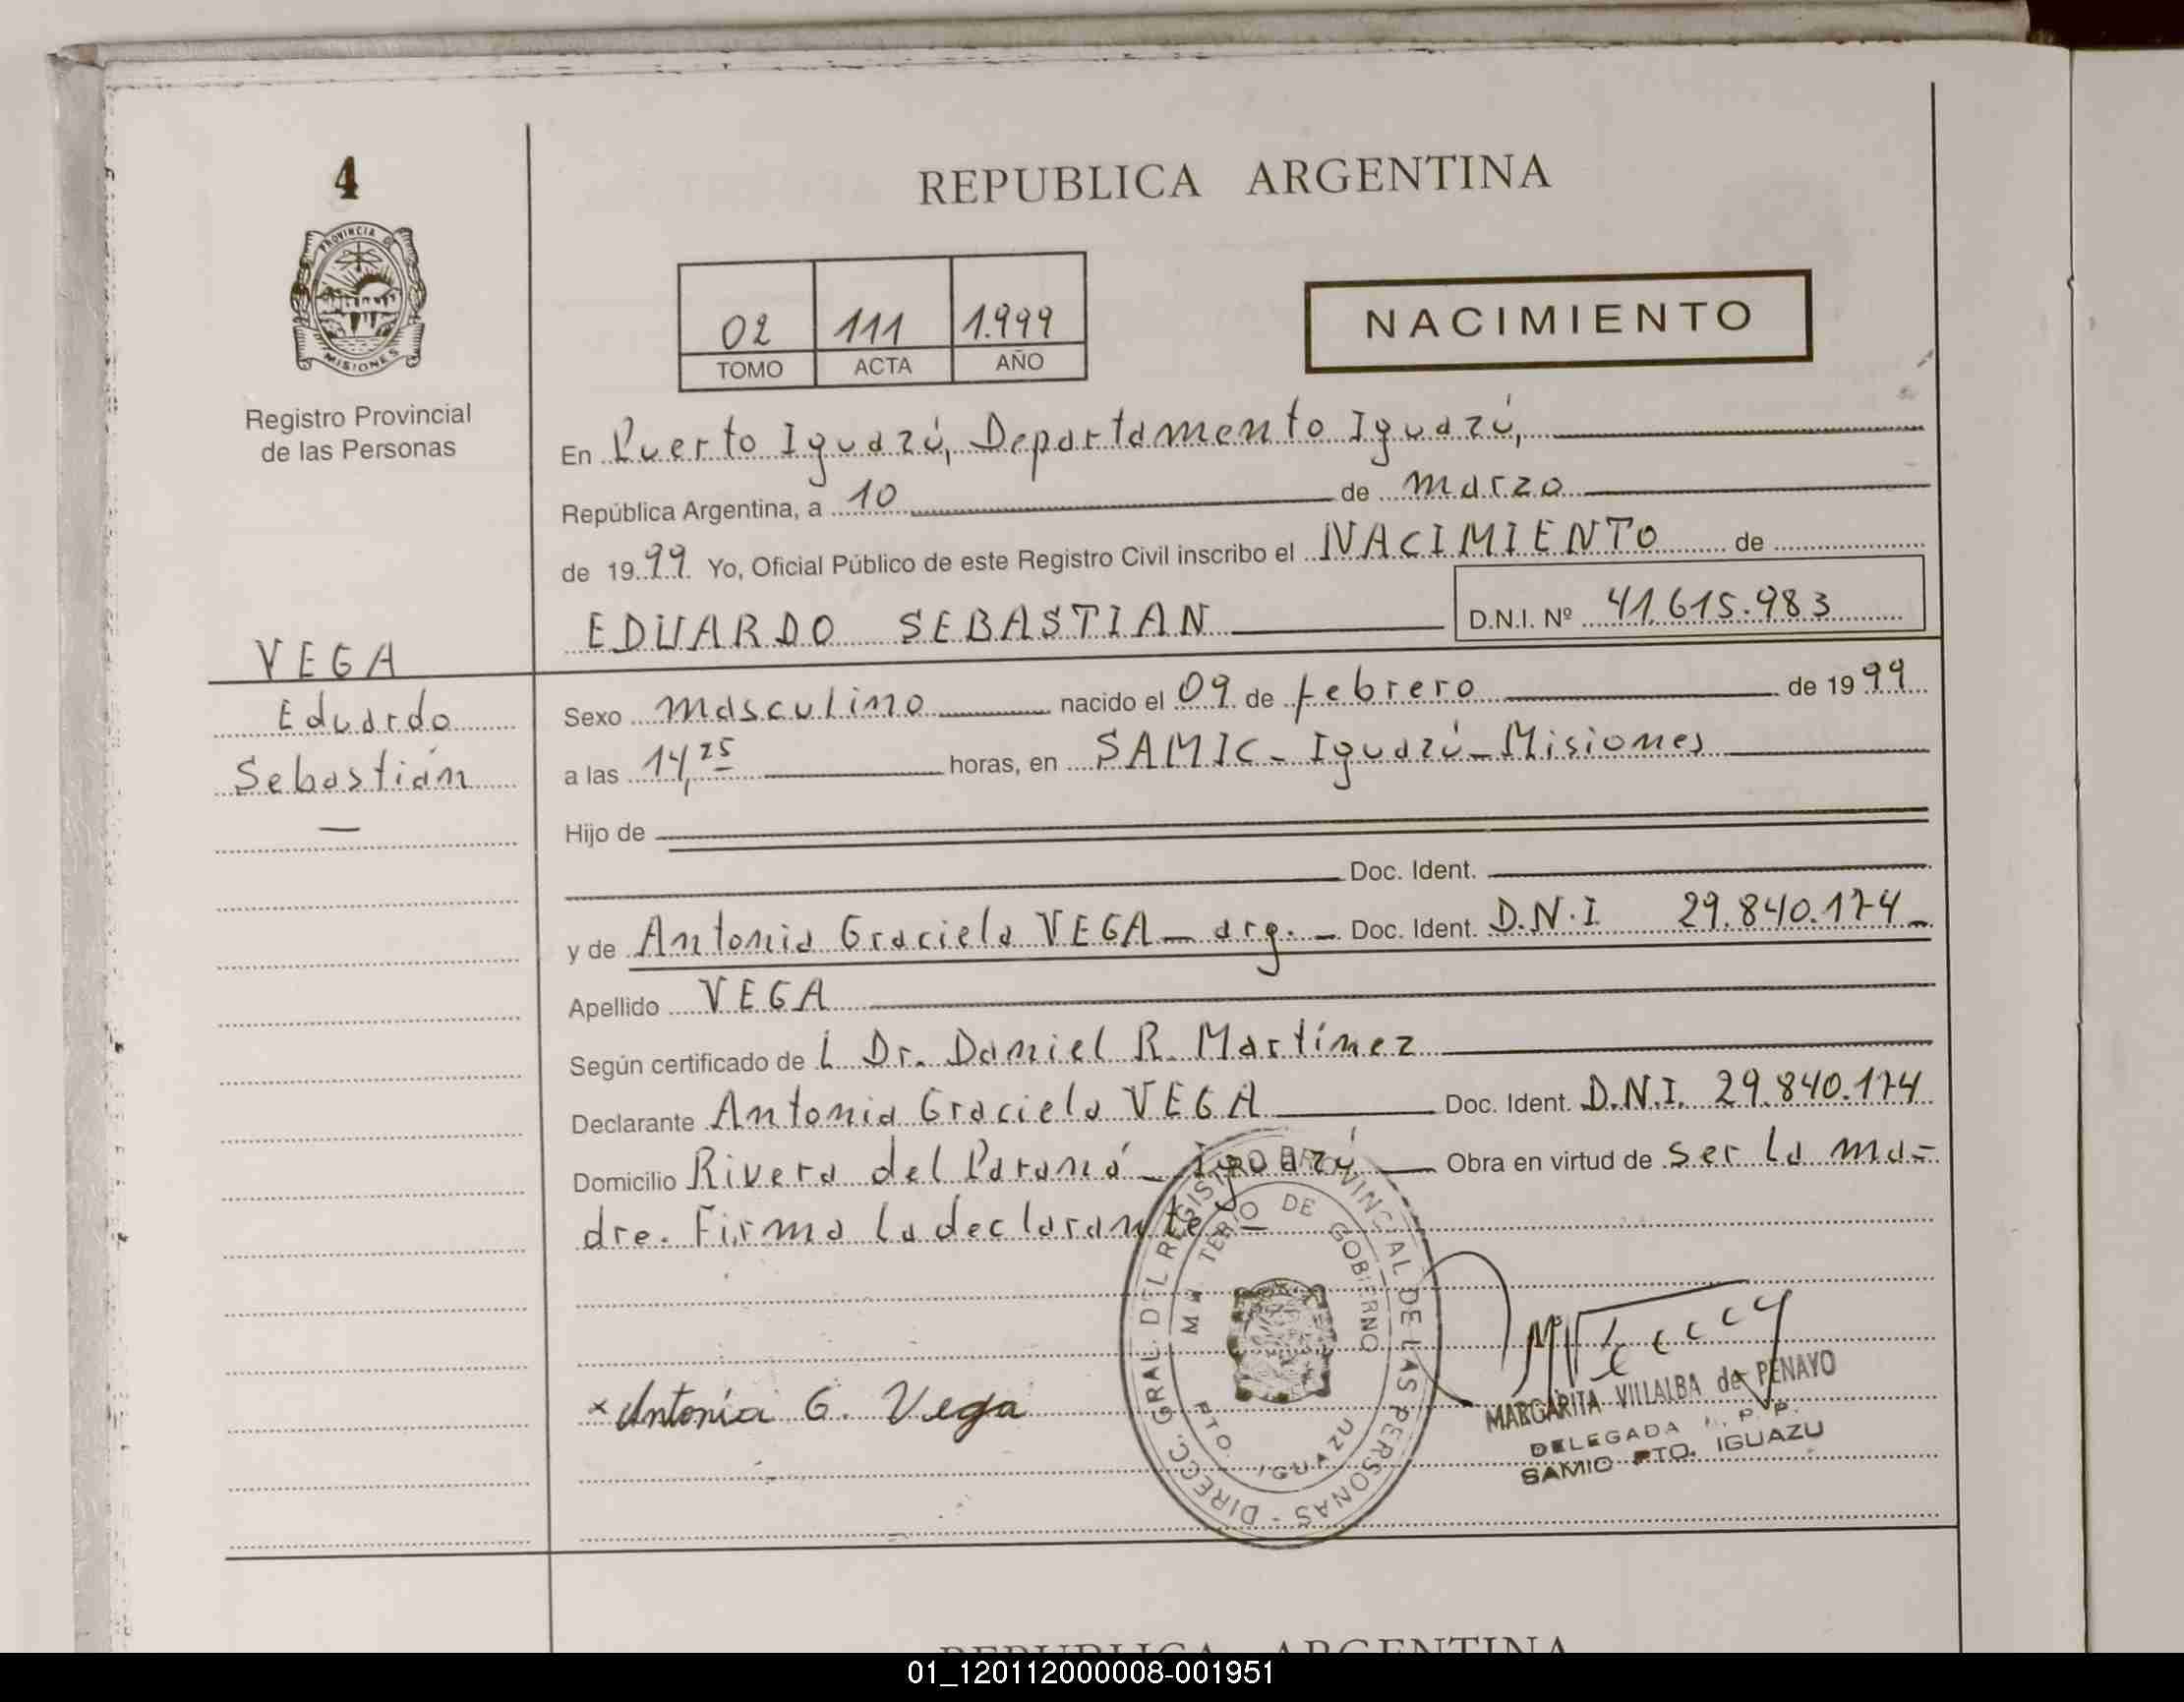 4
REPUBLICA ARGENTINA
PROVINCIA DE
MISIONES
Registro Provincial
de las Personas
02 111 1.999
TOMO ACTA AÑO
NACIMIENTO
En Puerto Iguazú, Departamento Iguazú,
República Argentina, a 10 de marzo
de 1999 Yo, Oficial Público de este Registro Civil inscribo el NACIMIENTO de
EDUARDO SEBASTIAN D.N.I. Nº 41.615.983
VEGA
Eduardo
Sebastián
—
Sexo masculino nacido el 09 de febrero de 1999
a las 14,25 horas, en SAMIC - Iguazú - Misiones
Hijo de
Doc. Ident.
y de Antonia Graciela VEGA - arg. - Doc. Ident. D.N.I 29.840.174 -
Apellido VEGA
Según certificado de L Dr. Daniel R. Martínez
Declarante Antonia Graciela VEGA Doc. Ident. D.N.I. 29.840.174
Domicilio Rivera del Paraná - Iguazú Obra en virtud de ser la ma=
dre. Firma la declarante -
DIRECC. GRAL. DEL REGISTRO PROVINCIAL DE LAS PERSONAS -
TERIO DE GOBIERNO
PTO. IGUAZU
x Antonia G. Vega
MARGARITA VILLALBA de PENAYO
DELEGADA
SAMIC PTO. IGUAZU
REPUBLICA ARGENTINA
01_120112000008-001951